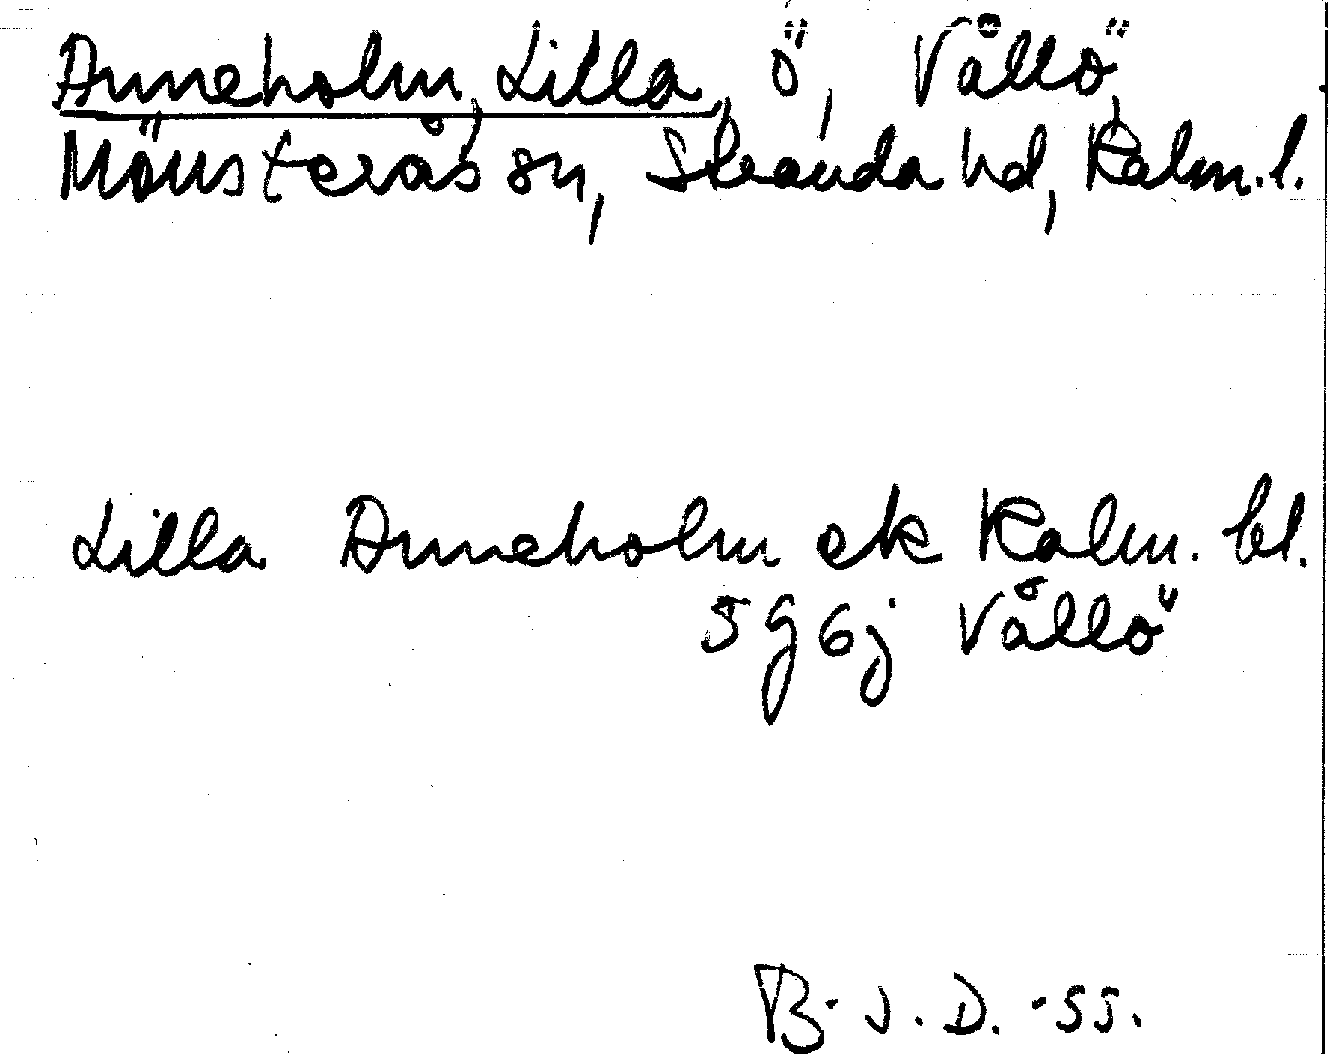 Anneholm, Lilla, ö, Vållö,
Mönsterås sn, Stranda hd, Kalm. l.
Lilla Anneholm ek Kalm. bl.
5g6j Vållö
B.J.D. -55.